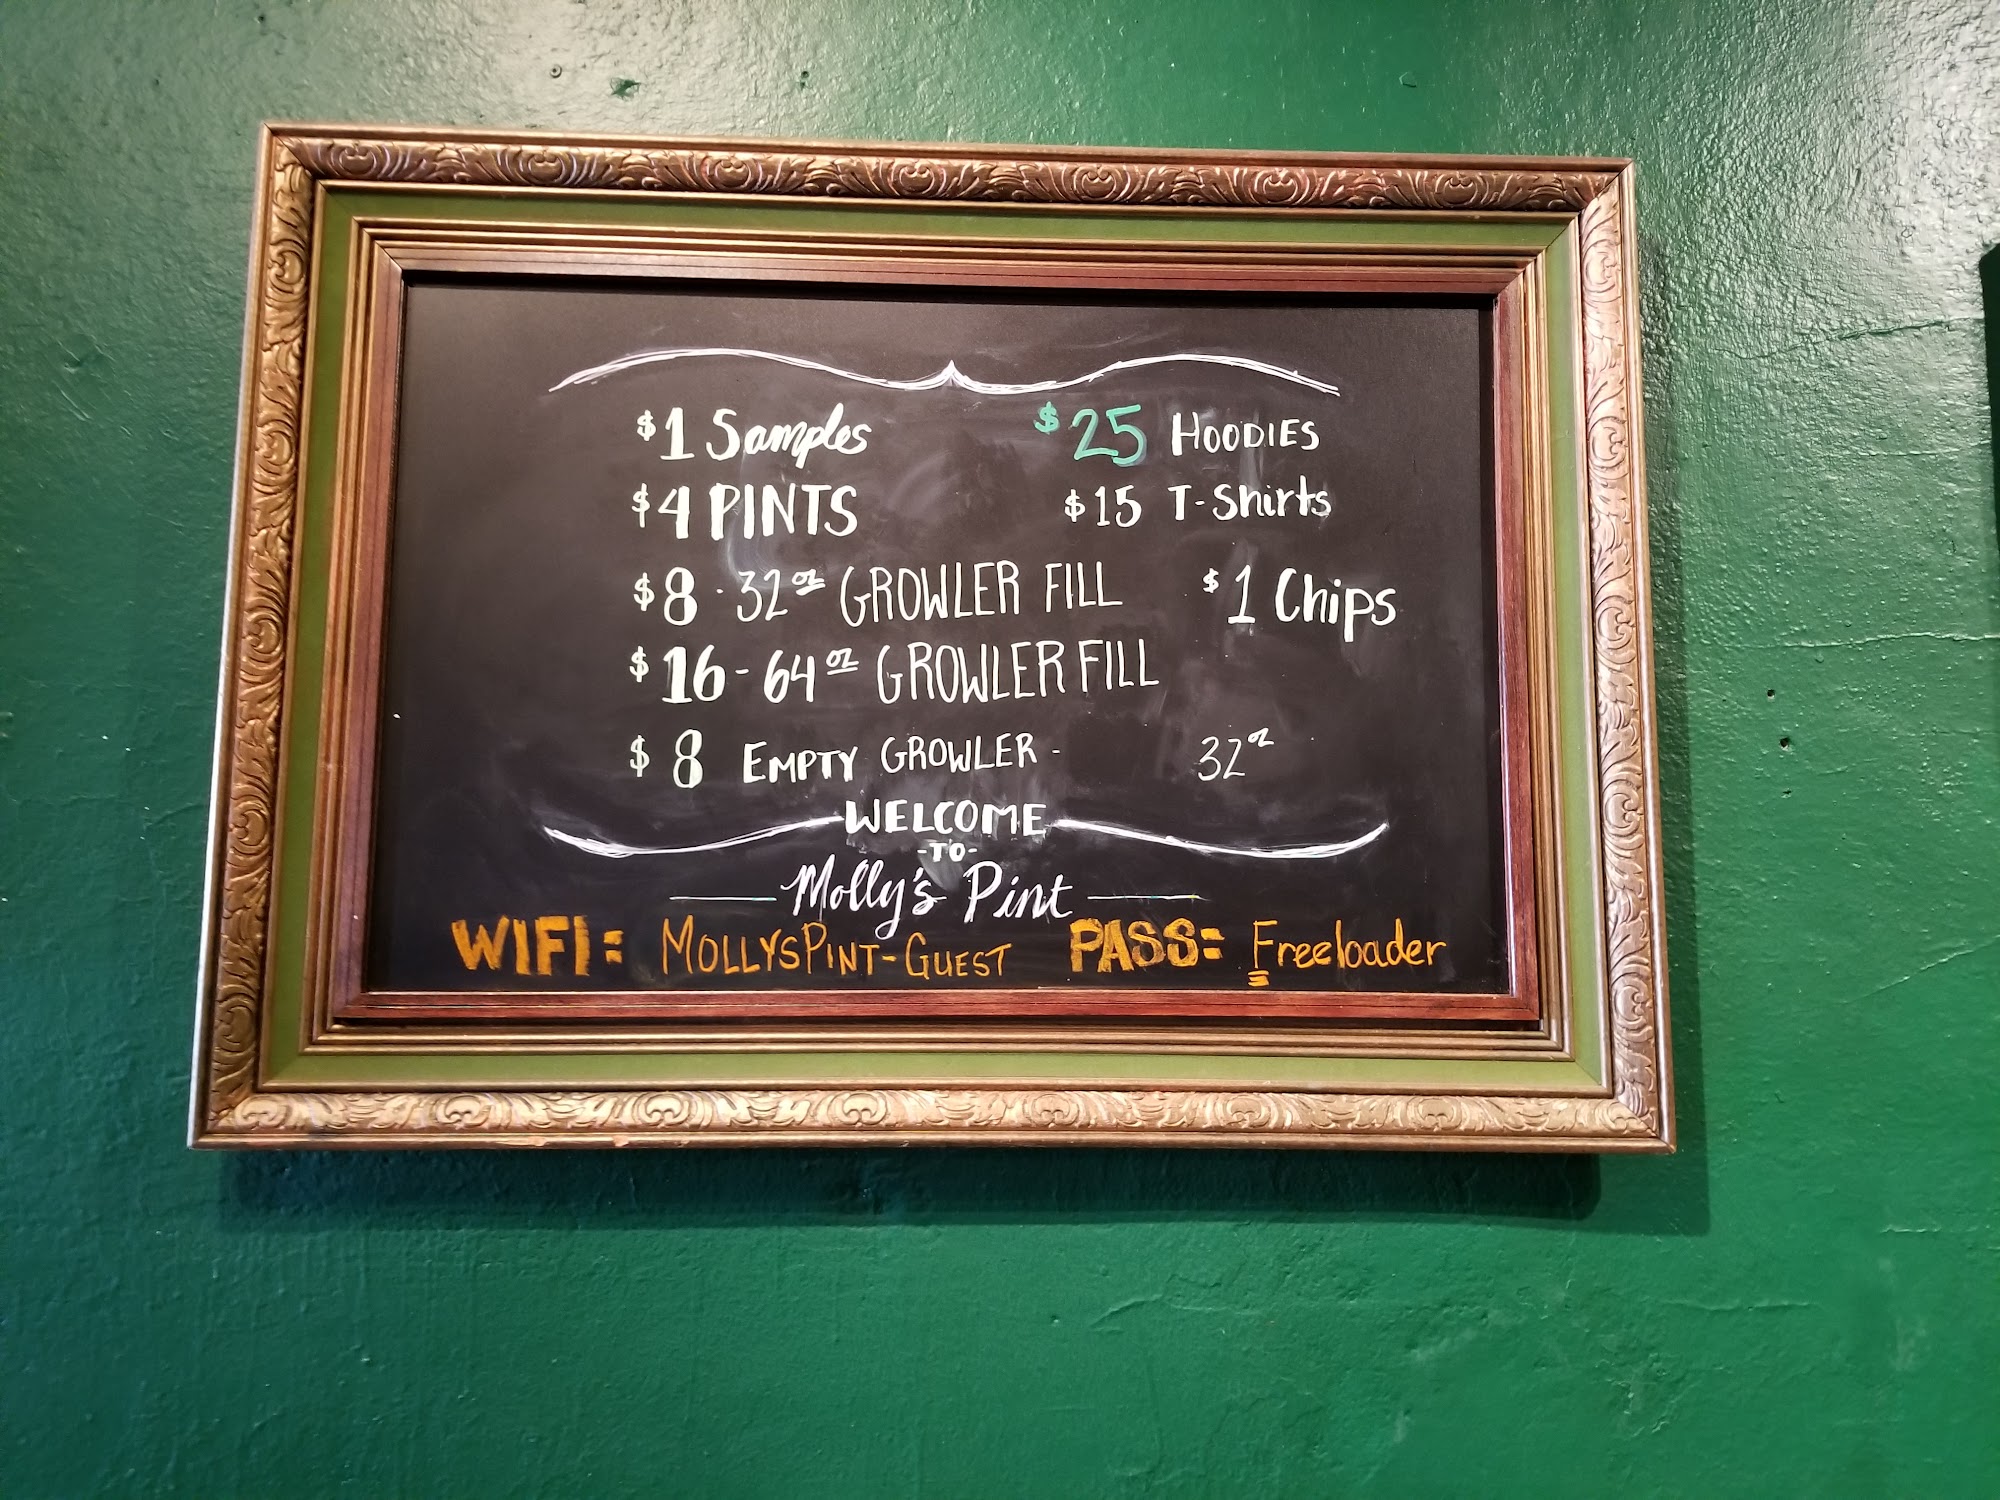 $1 Samples $25 HOODIES
$4 PINTS $15 T-Shirts
$8 · 32oz GROWLER FILL $1 Chips
$16 - 64oz GROWLER FILL
$8 EMPTY GROWLER - 32oz
WELCOME
-TO-
Molly's Pint
WIFI: MOLLYSPINT-GUEST PASS: Freeloader